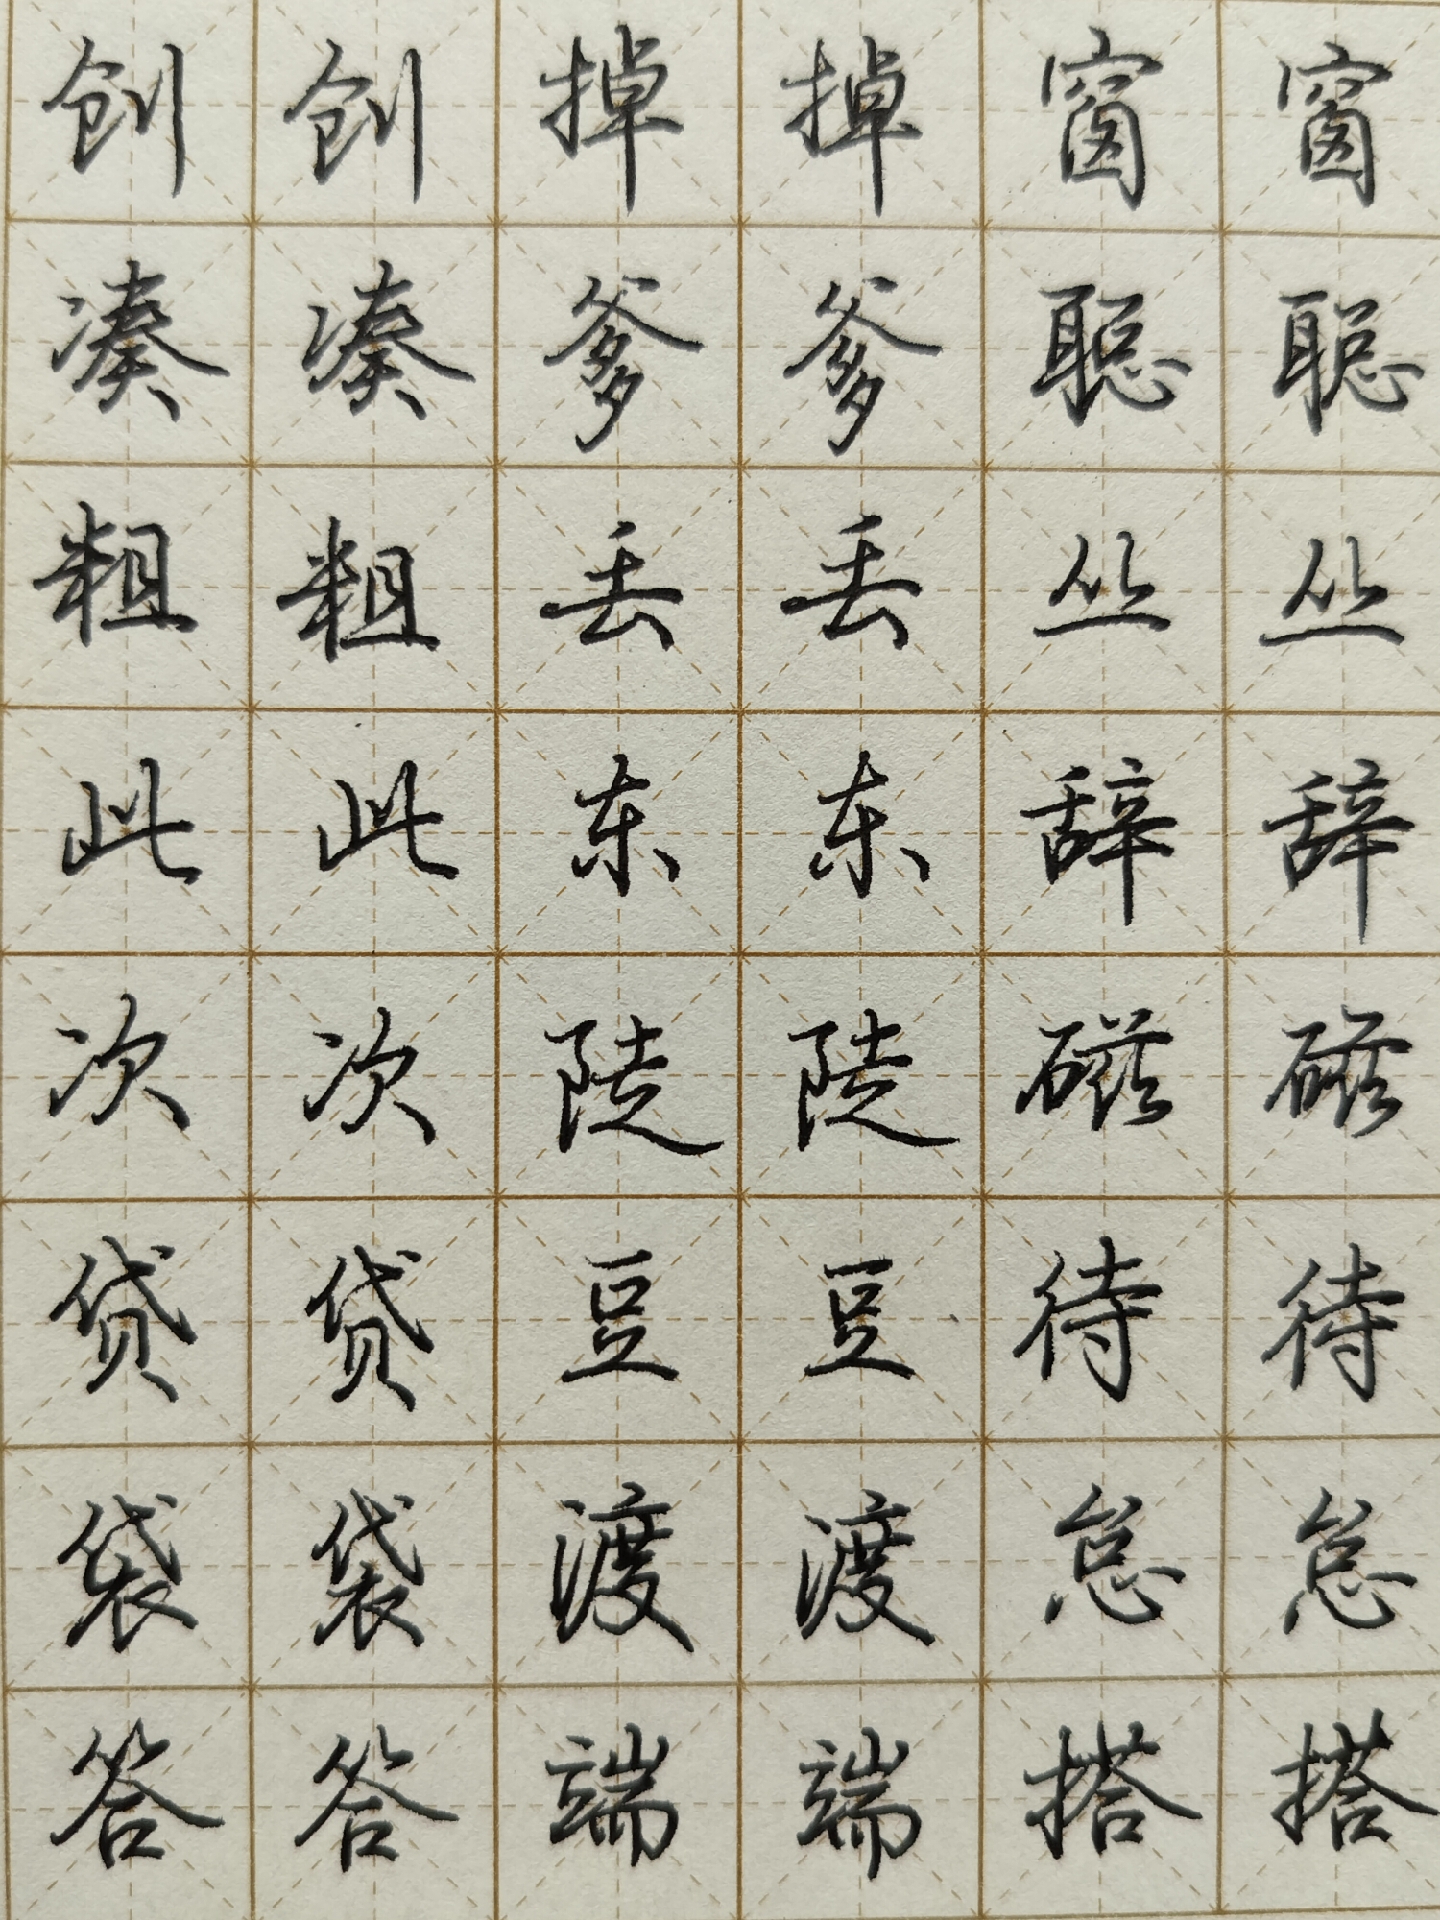 创创掉掉窗窗
凑凑爹爹聪聪
粗粗丢丢丛丛
此此东东辞辞
次次陡陡磁磁
贷贷豆豆待待
袋袋渡渡怠怠
答答端端搭搭